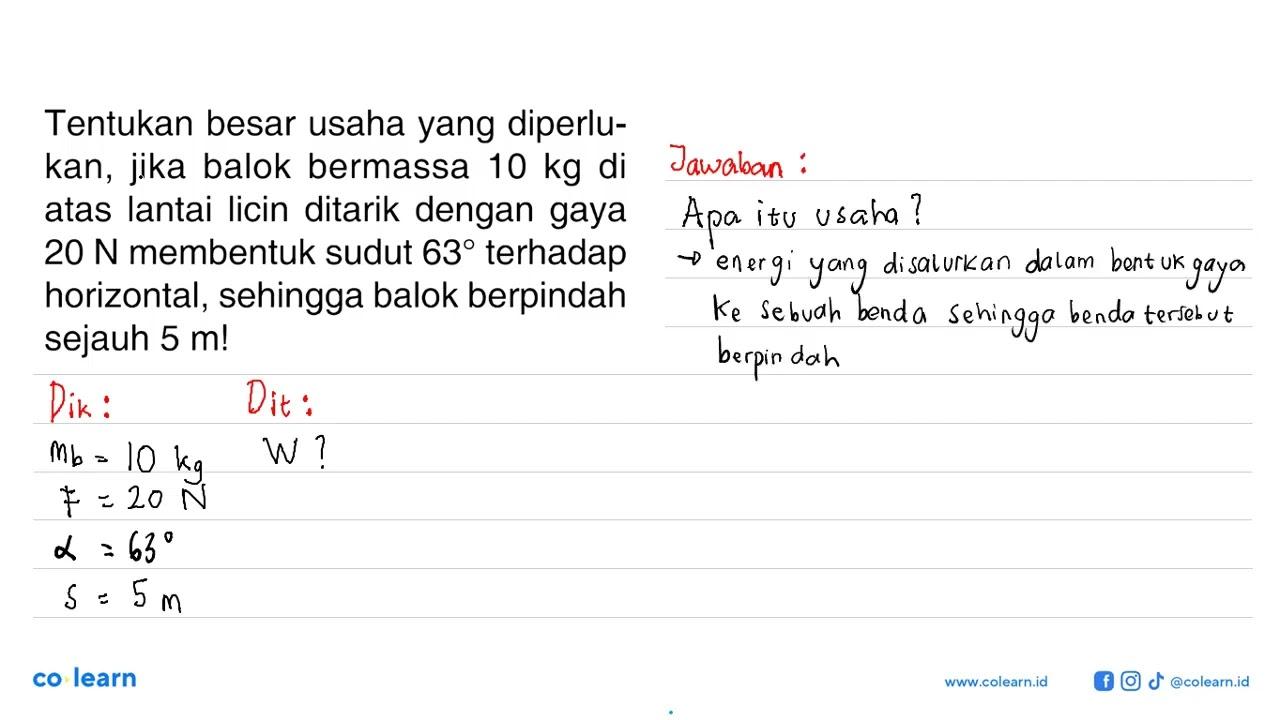 Tentukan besar usaha yang diperlu-
kan, jika balok bermassa 10 kg di
atas lantai licin ditarik dengan gaya
20 N membentuk sudut 63° terhadap
horizontal, sehingga balok berpindah
sejauh 5 m!
Jawaban :
Apa itu usaha?
→ energi yang disalurkan dalam bentuk gaya
ke sebuah benda sehingga benda tersebut
berpindah
Dik :
mb = 10 kg
F = 20 N
α = 63°
s = 5 m
Dit :
W ?
co learn
www.colearn.id
@colearn.id